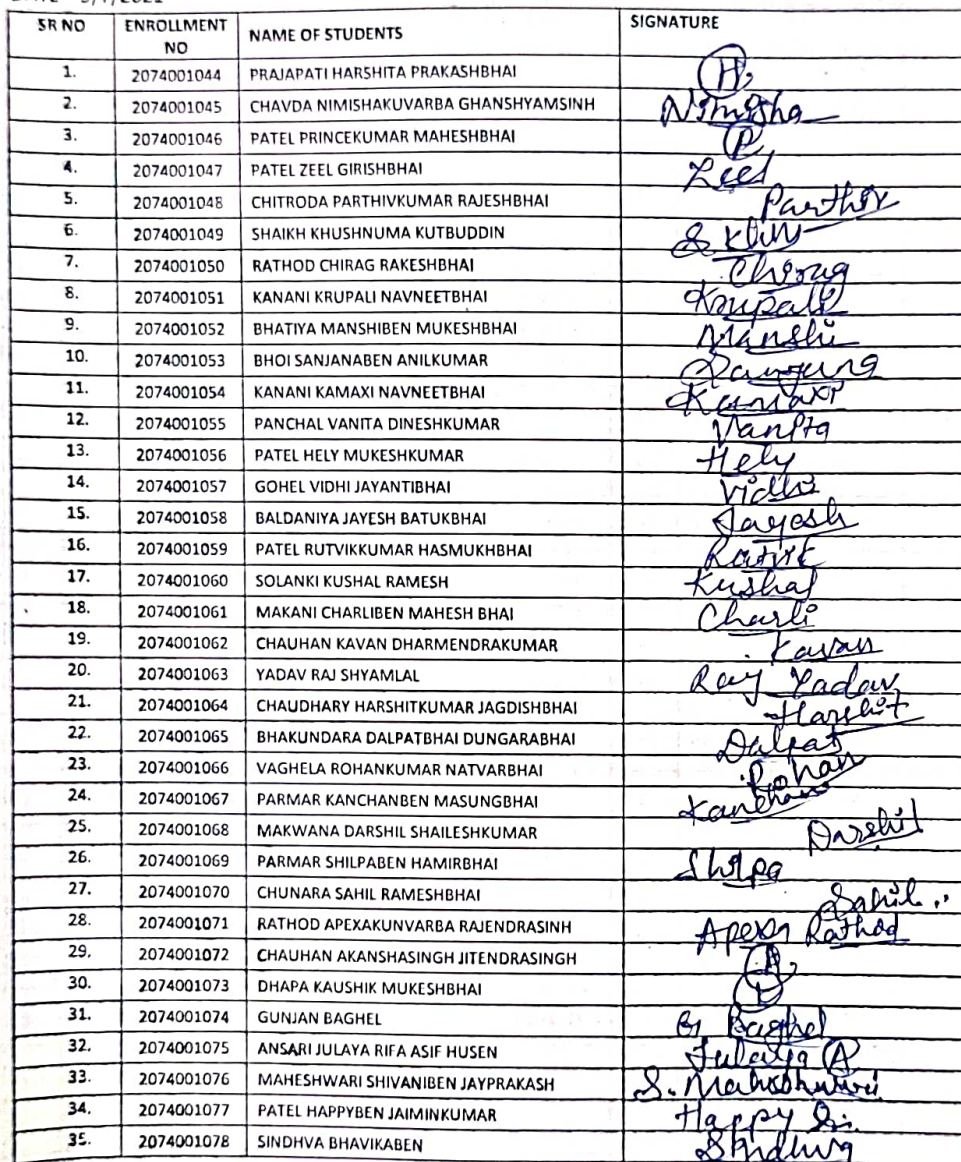 SR NO ENROLLMENT NO NAME OF STUDENTS SIGNATURE
1. 2074001044 PRAJAPATI HARSHITA PRAKASHBHAI H
2. 2074001045 CHAVDA NIMISHAKUVARBA GHANSHYAMSINH Nimisha
3. 2074001046 PATEL PRINCEKUMAR MAHESHBHAI P
4. 2074001047 PATEL ZEEL GIRISHBHAI Zeel
5. 2074001048 CHITRODA PARTHIVKUMAR RAJESHBHAI Parthiv
6. 2074001049 SHAIKH KHUSHNUMA KUTBUDDIN
7. 2074001050 RATHOD CHIRAG RAKESHBHAI Chirag
8. 2074001051 KANANI KRUPALI NAVNEETBHAI Krupali
9. 2074001052 BHATIYA MANSHIBEN MUKESHBHAI Manshi
10. 2074001053 BHOI SANJANABEN ANILKUMAR Sanjana
11. 2074001054 KANANI KAMAXI NAVNEETBHAI Kamaxi
12. 2074001055 PANCHAL VANITA DINESHKUMAR Vanita
13. 2074001056 PATEL HELY MUKESHKUMAR Hely
14. 2074001057 GOHEL VIDHI JAYANTIBHAI Vidhi
15. 2074001058 BALDANIYA JAYESH BATUKBHAI Jayesh
16. 2074001059 PATEL RUTVIKKUMAR HASMUKHBHAI Rutvik
17. 2074001060 SOLANKI KUSHAL RAMESH Kushal
18. 2074001061 MAKANI CHARLIBEN MAHESH BHAI Charli
19. 2074001062 CHAUHAN KAVAN DHARMENDRAKUMAR Kavan
20. 2074001063 YADAV RAJ SHYAMLAL Raj Yadav
21. 2074001064 CHAUDHARY HARSHITKUMAR JAGDISHBHAI Harshit
22. 2074001065 BHAKUNDARA DALPATBHAI DUNGARABHAI Dalpat
23. 2074001066 VAGHELA ROHANKUMAR NATVARBHAI Rohan
24. 2074001067 PARMAR KANCHANBEN MASUNGBHAI Kanchan
25. 2074001068 MAKWANA DARSHIL SHAILESHKUMAR Darshil
26. 2074001069 PARMAR SHILPABEN HAMIRBHAI Shilpa
27. 2074001070 CHUNARA SAHIL RAMESHBHAI Sahil
28. 2074001071 RATHOD APEXAKUNVARBA RAJENDRASINH Apexa Rathod
29. 2074001072 CHAUHAN AKANSHASINGH JITENDRASINGH A
30. 2074001073 DHAPA KAUSHIK MUKESHBHAI
31. 2074001074 GUNJAN BAGHEL G Baghel
32. 2074001075 ANSARI JULAYA RIFA ASIF HUSEN Julaya A
33. 2074001076 MAHESHWARI SHIVANIBEN JAYPRAKASH S. Maheshwari
34. 2074001077 PATEL HAPPYBEN JAIMINKUMAR Happy
35. 2074001078 SINDHVA BHAVIKABEN Sindhva